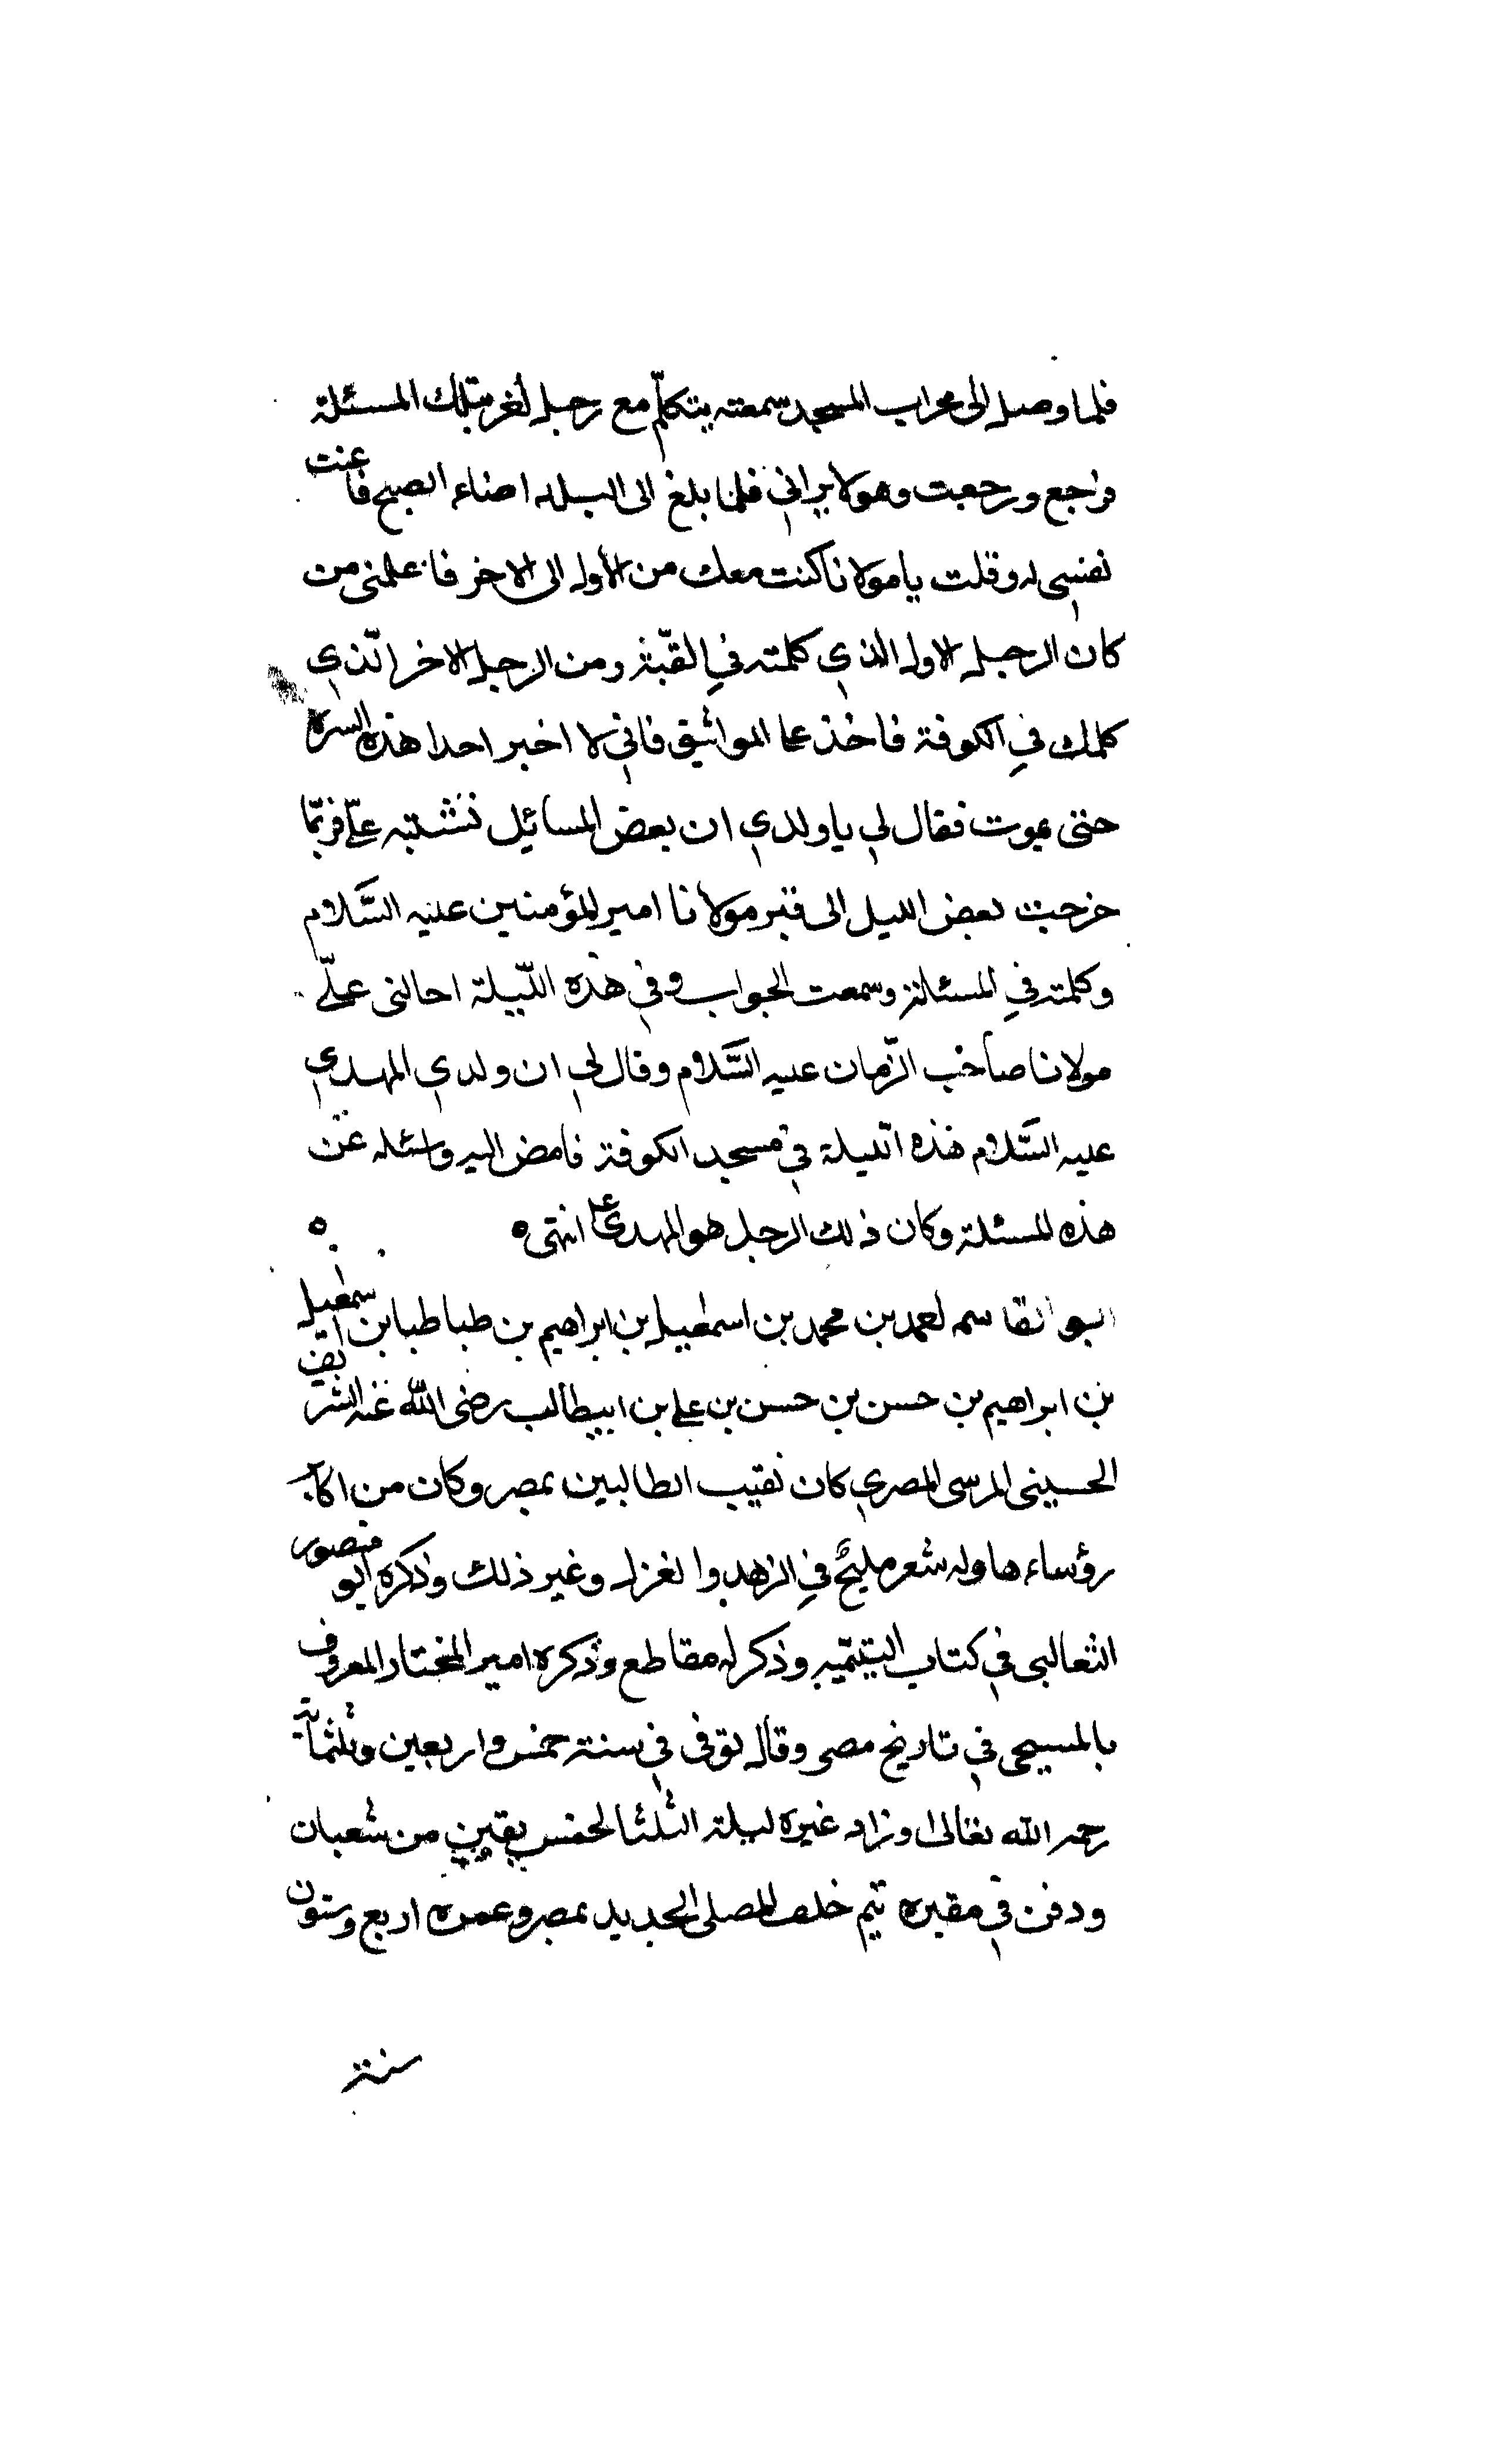 فلما وصل الى محراب المسجد سمعته يتكلم مع رجل اخر بتلك المسئلة
فراجع ورجعت وهو لا يراني فلما بلغ الى البلد اضاء الصبح فاعنت
نفسي له وقلت يا مولانا كنت معك من الأول الى الاخر فاعلمنى من
كان الرجل الاول الذي كلمته في القبّة ومن الرجل الاخر الّذي
كلمك في الكوفة فاخذ علىّ المواثيق فاني لا اخبر احدا هذه السره
حتى يموت فقال لي يا ولدي ان بعض المسائل تشتبه علىّ فربّما
خرجت بعض الليل الى قبر مولانا امير المؤمنين عليه السَّلام
وكلمته في المسئلة وسمعت الجواب وفي هذه اللّيلة احالنى علىّ
مولانا صاحب الزّمان عليه السَّلام وقال لي ان ولدي المهدي
عليه السَّلام هذه الليلة في مسجد الكوفة فامض اليه واسئله عن
هذه المسئلة وكان ذلك الرجل هو المهدي ع انتهى ه ه
ابو القاسم احمد بن محمد بن اسمعيل بن ابراهيم بن طباطبا بن اسمعيل
بن ابراهيم بن حسن بن حسن بن علي بن ابيطالب رضى الله عنه الشريف
الحسينى الرسى المصري كان نقيب الطالبين بمصر وكان من اكابر
رؤساءها وله شعر مليح في الزهد والغزل وغير ذلك وذكره ابو منصور
الثعالبى في كتاب اليتيمه وذكر له مقاطع وذكره امير المختار المعروف
بالمسبحى في تاريخ مصر وقال توفى في سنة خمس واربعين وثلثمائة
رحمه الله تعالى وزاد غيره ليلة الثلثا لخمس بقين من شعبان
ودفن في مقبره تيم خلف المصلى الجديد بمصر وعمره اربع وستون
سنة